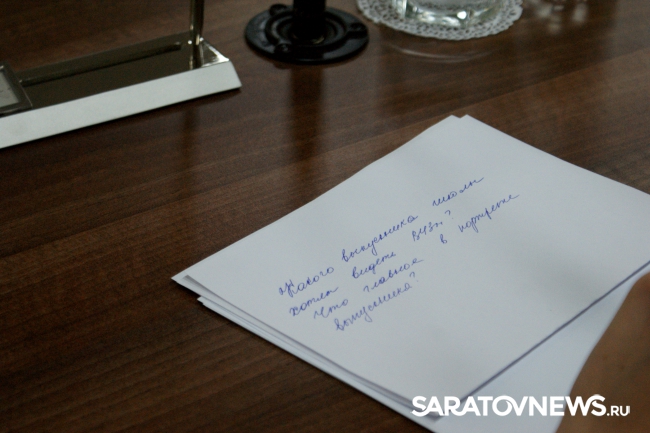 Какого выпускника школы
хотел видеть ВУЗы?
Что главное в портрете
выпускника?
SARATOVNEWS.RU